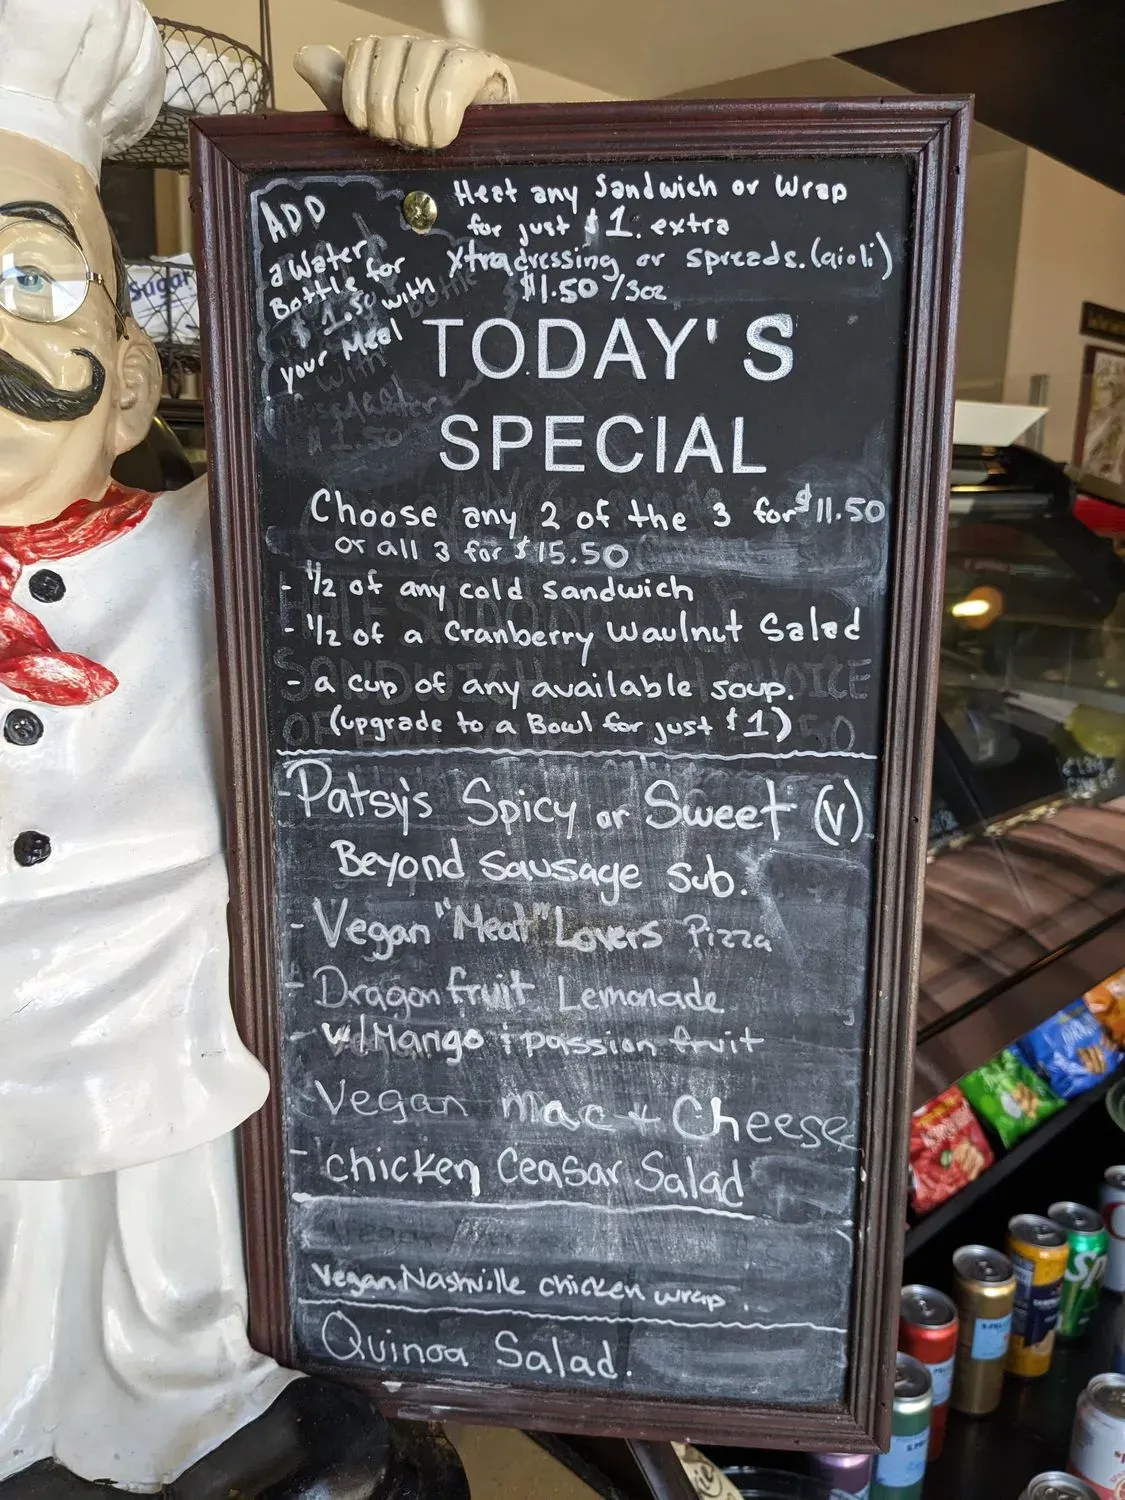 ADD
a Water
Bottle for
$1.50 with
your Meal
Heat any Sandwich or Wrap
for just $1. extra
xtra dressing or spreads. (aioli)
$1.50/3oz
TODAY'S
SPECIAL
Choose any 2 of the 3 for $11.50
or all 3 for $15.50
- 1/2 of any cold sandwich
- 1/2 of a Cranberry Waulnut Salad
- a cup of any available soup.
(upgrade to a Bowl for just $1)
- Patsy's Spicy or Sweet (V)
Beyond sausage sub.
- Vegan "Meat" Lovers Pizza
- Dragonfruit Lemonade
- w/Mango & passion fruit
Vegan mac & Cheese
- chicken Ceasar Salad
Vegan Nashville chicken wrap.
Quinoa Salad.
Sugar